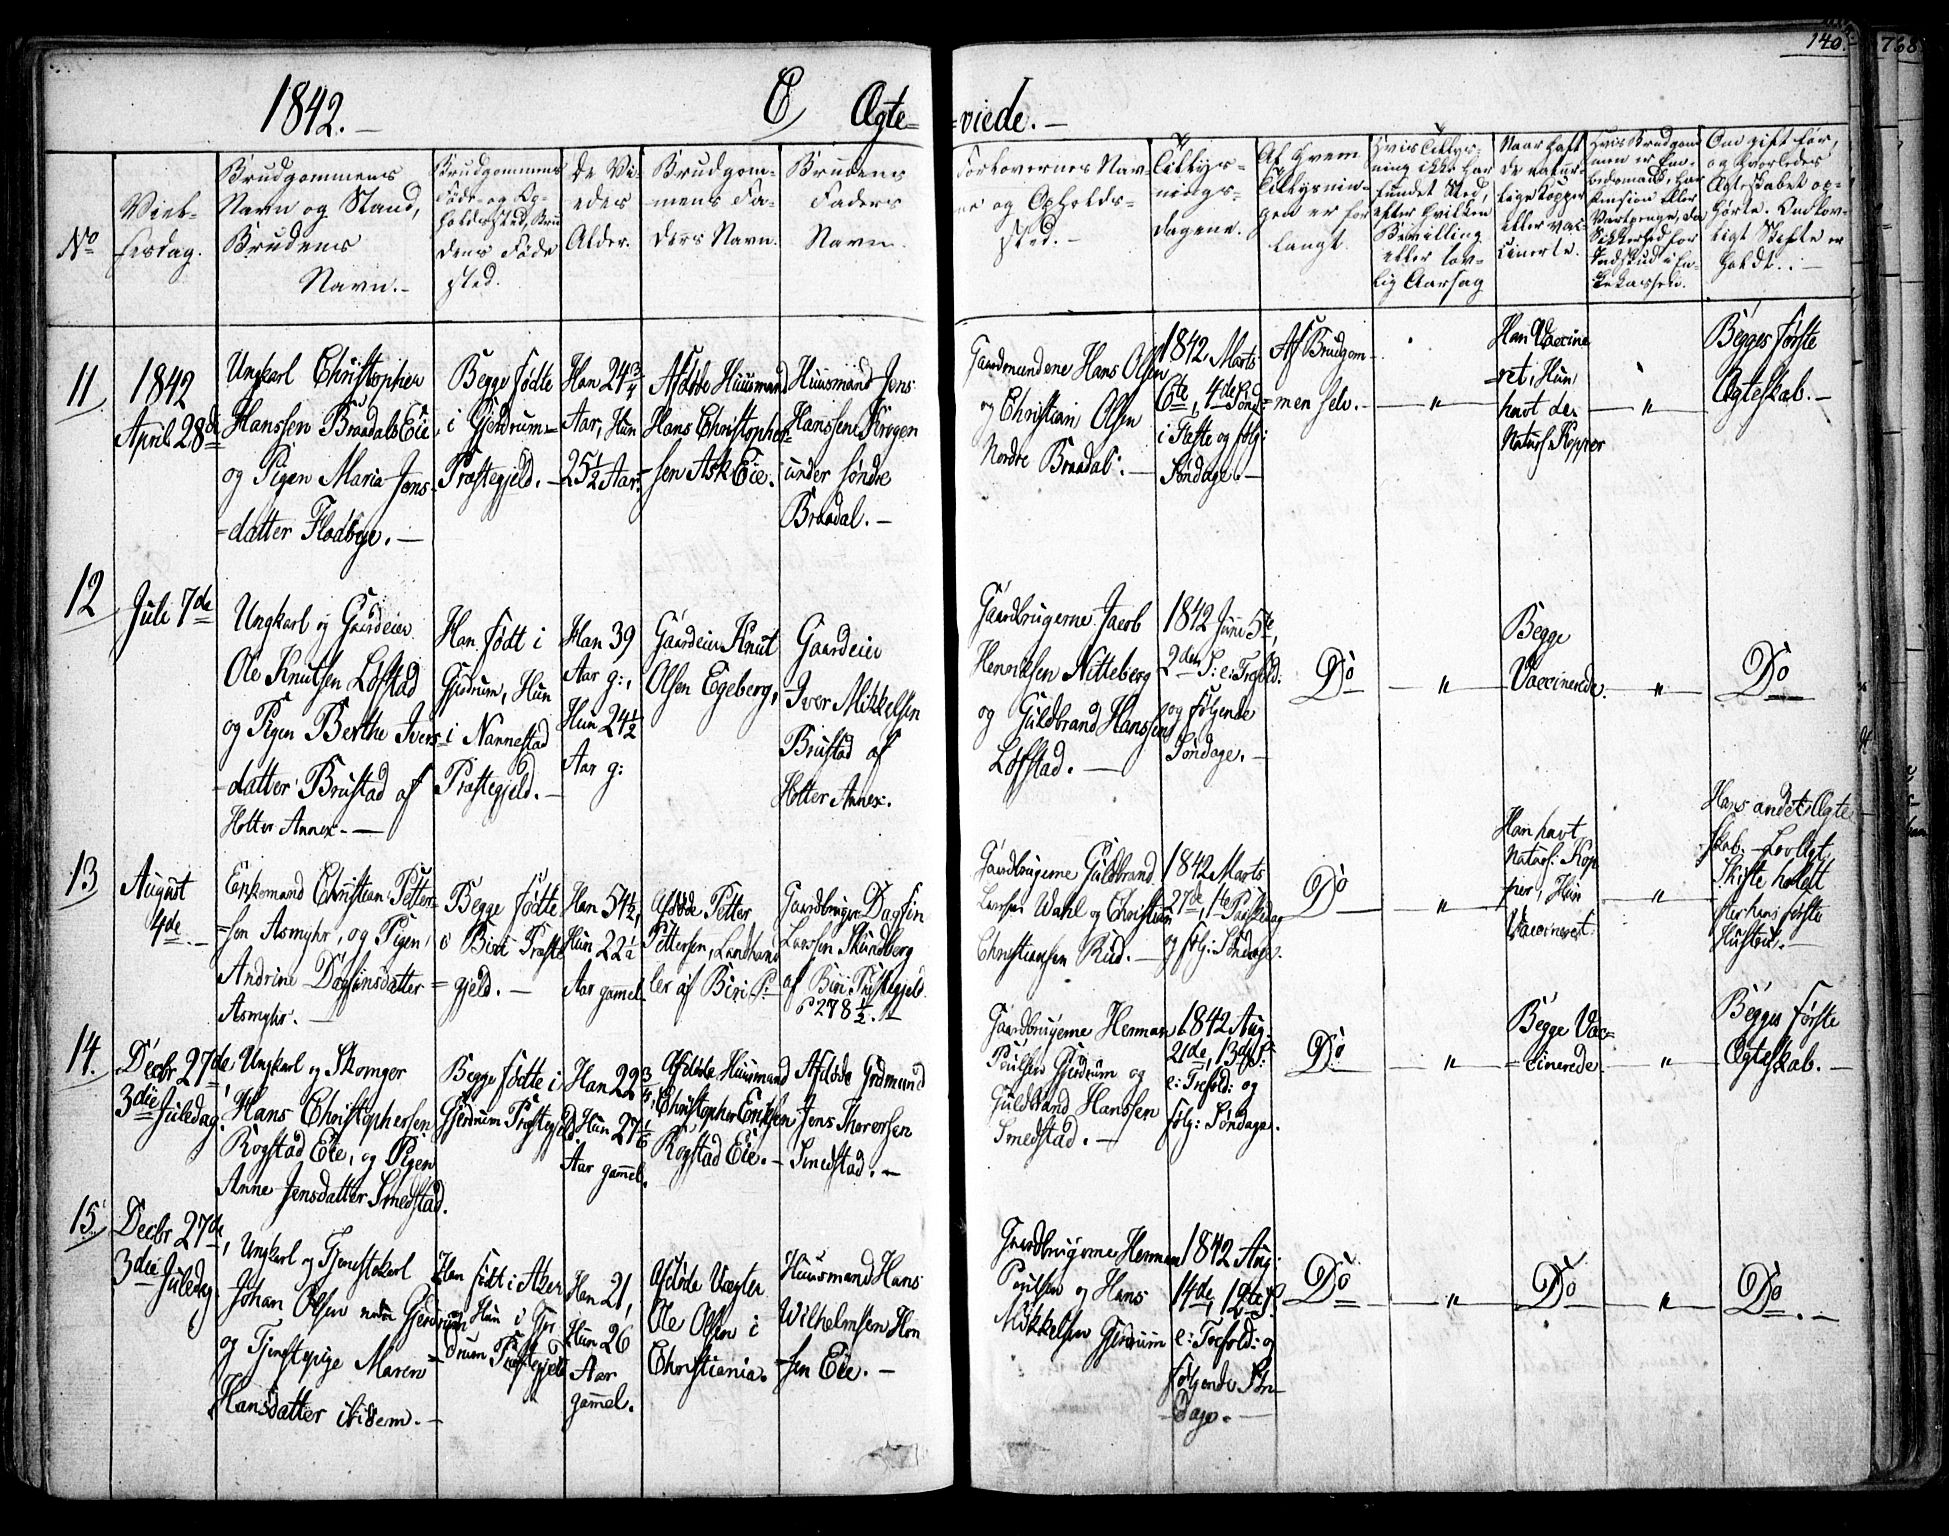 140.
768
1842.-
C, Ægte=
=viede.-
No
Viel-
sesdag.
Brudgommens
Navn og Stand,
Brudens
Navn.-
Brudgommens
Føde- og Op-
holdssted, Bru
dens Føde
sted.
De Vi-
edes
Alder.
Brudgom-
mens Fa-
ders Navn.
Brudens
Faders
Navn.
Forlovernes Nav
ne og Opholds-
sted.-
Tillys-
nings-
dagene.
Af hvem
Tillysnin-
gen er for
langt.
Hvis Tillys-
ning ikke har
fundet Sted,
efter hvilken
Bevilling
eller lov-
lig Aarsag
Naar havt
de natur-
lige Kopper
eller vac-
cinerte.
Hvis Brudgom
men er Em-
bedsmand, har
Pension eller
Vartpenge, da
Sikkerhed for
Indskud i En-
kekassen.
Om gift før,
og hvorledes
Ægteskabet op-
hørte. Om lov-
ligt Skifte er
holdt.-
11
1842
April 28de
Ungkarl Christopher
Hanssen Braadals Eie
og Pigen Maria Jens-
=datter Flodbye.-
Begge fødte
i Gjerdrum
Præstegjeld.-
Han 24 3/4
Aar, Hun
25 1/2 Aar.
Afdøde Huusmand
Hans Christopher-
sen Ask Eie.
Huusmand Jens
Hanssen Krogen
under søndre
Braadal.-
Gaardmændene Hans Olsen
og Christian Olsen
Nordre Braadal.-
1842 Marts
6te, 4de Sønd
i Faste og følg:
Søndage.-
Af Brudgom-
=men selv.-
"
Han Vaccine
=ret, Hun
havt de
Naturl. Kopper
"
Begges første
Ægteskab.-
12
Juli 7de
Ungkarl og Gaardeier
Ole Knutsen Løfstad
og Pigen Berthe Ivers-
=datter Brustad af
Holter Annex.-
Han født i
Gjerdrum, Hun
i Nannestad
Præstegjeld.-
Han 39
Aar g:,
Hun 24 1/2
Aar g:
Gaardeier Knut
Olsen Egeberg,
Gaardeier
Iver Mikkelsen
Brustad af
Holter Annex.
Gaardbrugerne Jacob
Henriksen Nitteberg
og Guldbrand Hanssen
Løfstad.-
1842 Juni 5te,
2den S: e: Trefold:
og følgende
Søndage.-
Do
"
Begge
Vaccinerede.
"
Do
13
August
4de.-
Enkemand Christian Petter-
sen Asmyhr, og Pigen
Andrine Dagfinsdatter
Asmyhr.-
Begge fødte
i Birii Præste
=gjeld.-
Han 54 1/2,
Hun 22 1/2
Aar gamel.
Afdøde Petter
Pettersen, Landhand
ler af Biri P:
Gaardbruger Dagfin
Larsen Skundberg
af Biri Præstegjeld
P 278 1/2.-
Gaardbrugerne Guldbrand
Larsen Wahl og Christian
Christiansen Rud.-
1842 Marts
27de, 1te Paaskedag
og følg: Søndage.
Do
"
Han havt
Naturl: Kop
per, Hun
Vaccineret.
"
Hans andet Ægte
skab.- Lovligt
Skifte holdt
efter hans første
Hustru.-
14.
Decbr 27de
3die Juledag.
Ungkarl og Skomger
Hans Christophersen
Rogstad Eie, og Pigen
Anne Jensdatter Smedstad.
Begge fødte i
Gjerdrum Præstegjeld
Han 22 3/4,
Hun 27 1/6
Aar gamel.
Afdøde Huusmand
Christopher Eriksen
Rogstad Eie.-
Afdøde Grdmand
Jens Thorersen
Smedstad.-
Gaardbrugerne Herman
Poulsen Gjerdrum og
Guldbrand Hanssen
Smedstad.-
1842 Aug:
21de, 13de S:
e: Trefold: og
følg: Søndage.
Do
"
Begge Vac-
=cinerede
"
Begges første
Ægteskab.-
15
Decbr 27de,
3die Juledag
Ungkarl og Tjenestekarl
Johan Olsen Gjerdrum
og Tjenestepige Maren
Hansdatter ibidem.-
Han født i Aker
Hun i Gjer
=drum Præstegjeld
Han 21,
Hun 26
Aar
gamel.
Afdøde Vægter
Ole Olsen i
Christiania.
Huusmand Hans
Wilhelmsen
=sen Eie.-
Gaardbrugerne Herman
Poulsen og Hans
Mikkelsen Gjerdrum
1842 Aug:
14de, 12te S:
e: Trefold: og
følgende Søn-
=dage.-
Do
"
Do
"
Do.-